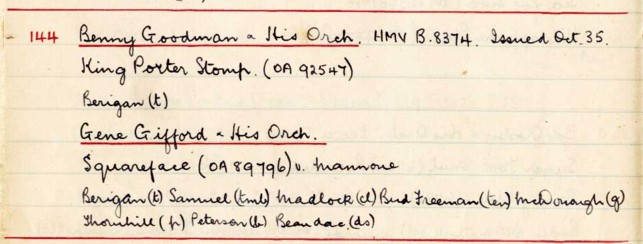 144 Benny Goodman & His Orch. HMV B.8374. Issued Oct. 35.
King Porter Stomp. (OA 92547)
Berigan (t)
Gene Gifford & His Orch.
Squareface (OA 89796) v. Mannone
Berigan (t) Samuel (tmb) Madlock (cl) Bud Freeman (ten) McDonough (g)
Thornhill (p) Peterson (b) Beaudac (ds)